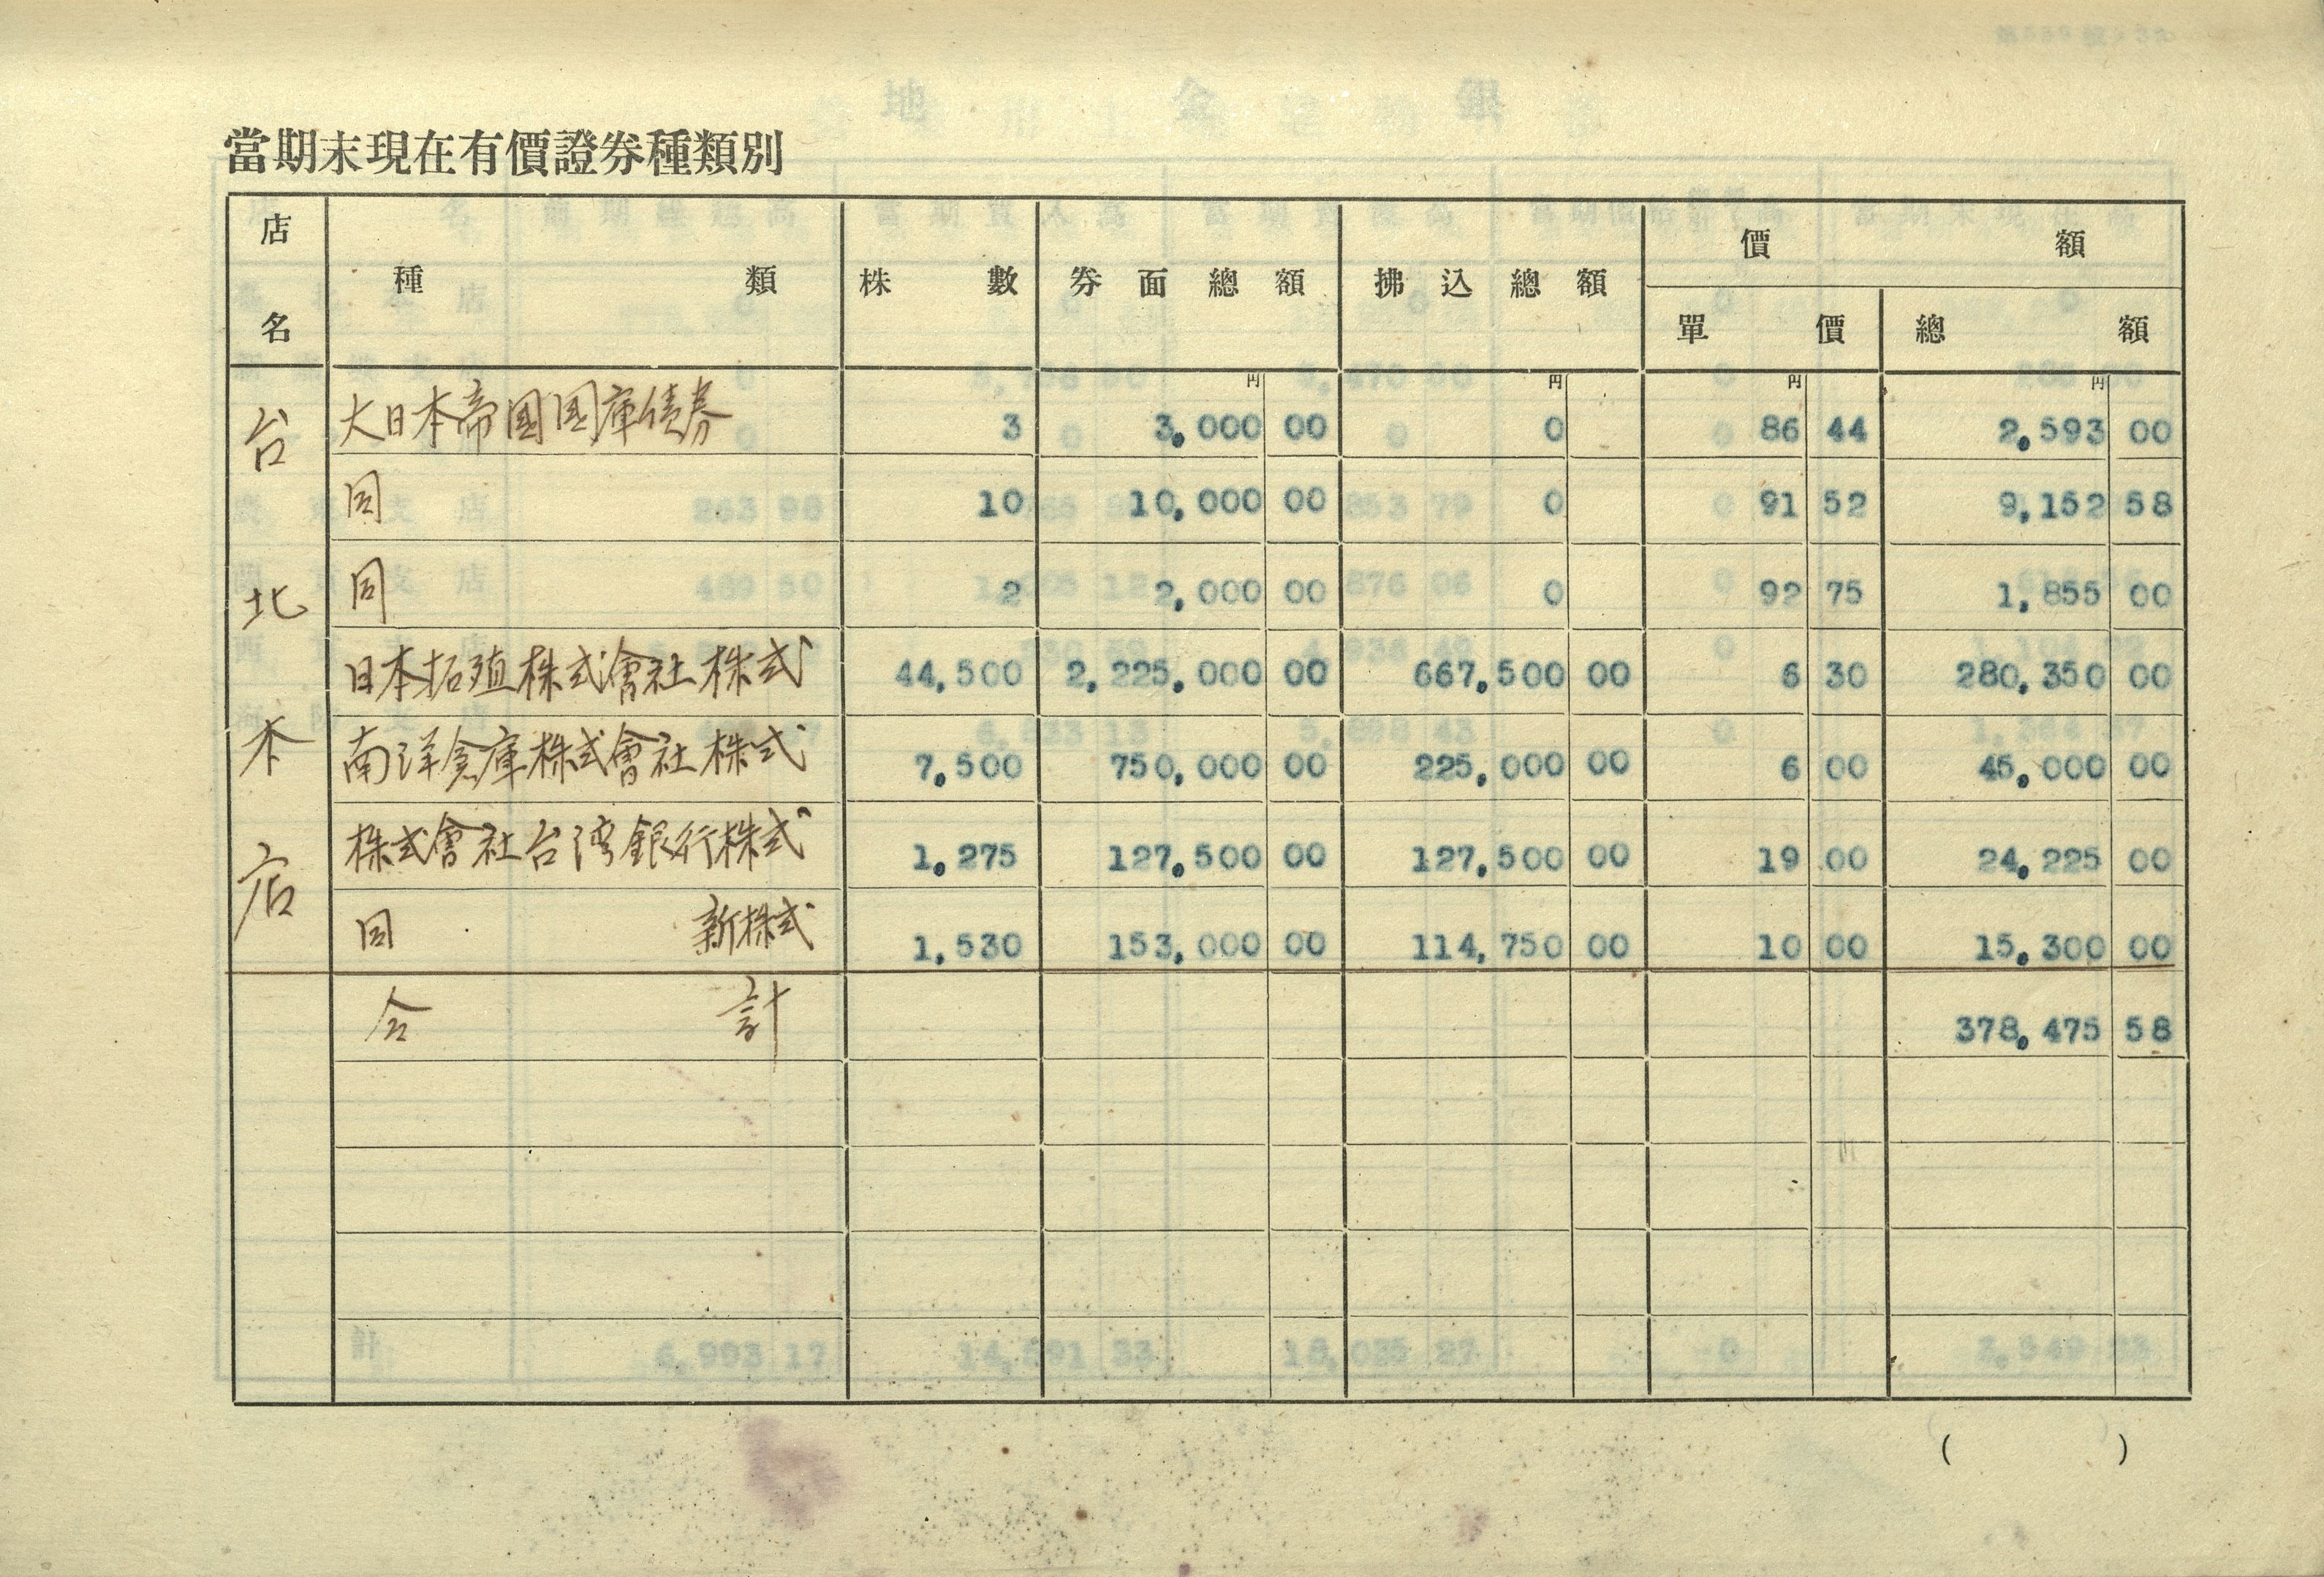 當期末現在有價證券種類別
店名 種類 株數 券面總額 拂込總額 價額
單價 總額
円 円 円 円
台北本店
大日本帝國国庫債券 3 3,000 00 0 86 44 2,593 00
同 10 10,000 00 0 91 52 9,152 58
同 2 2,000 00 0 92 75 1,855 00
日本拓殖株式會社株式 44,500 2,225,000 00 667,500 00 6 30 280,350 00
南洋倉庫株式會社株式 7,500 750,000 00 225,000 00 6 00 45,000 00
株式會社台湾銀行株式 1,275 127,500 00 127,500 00 19 00 24,225 00
同 新株式 1,530 153,000 00 114,750 00 10 00 15,300 00
合計 378,475 58
( )